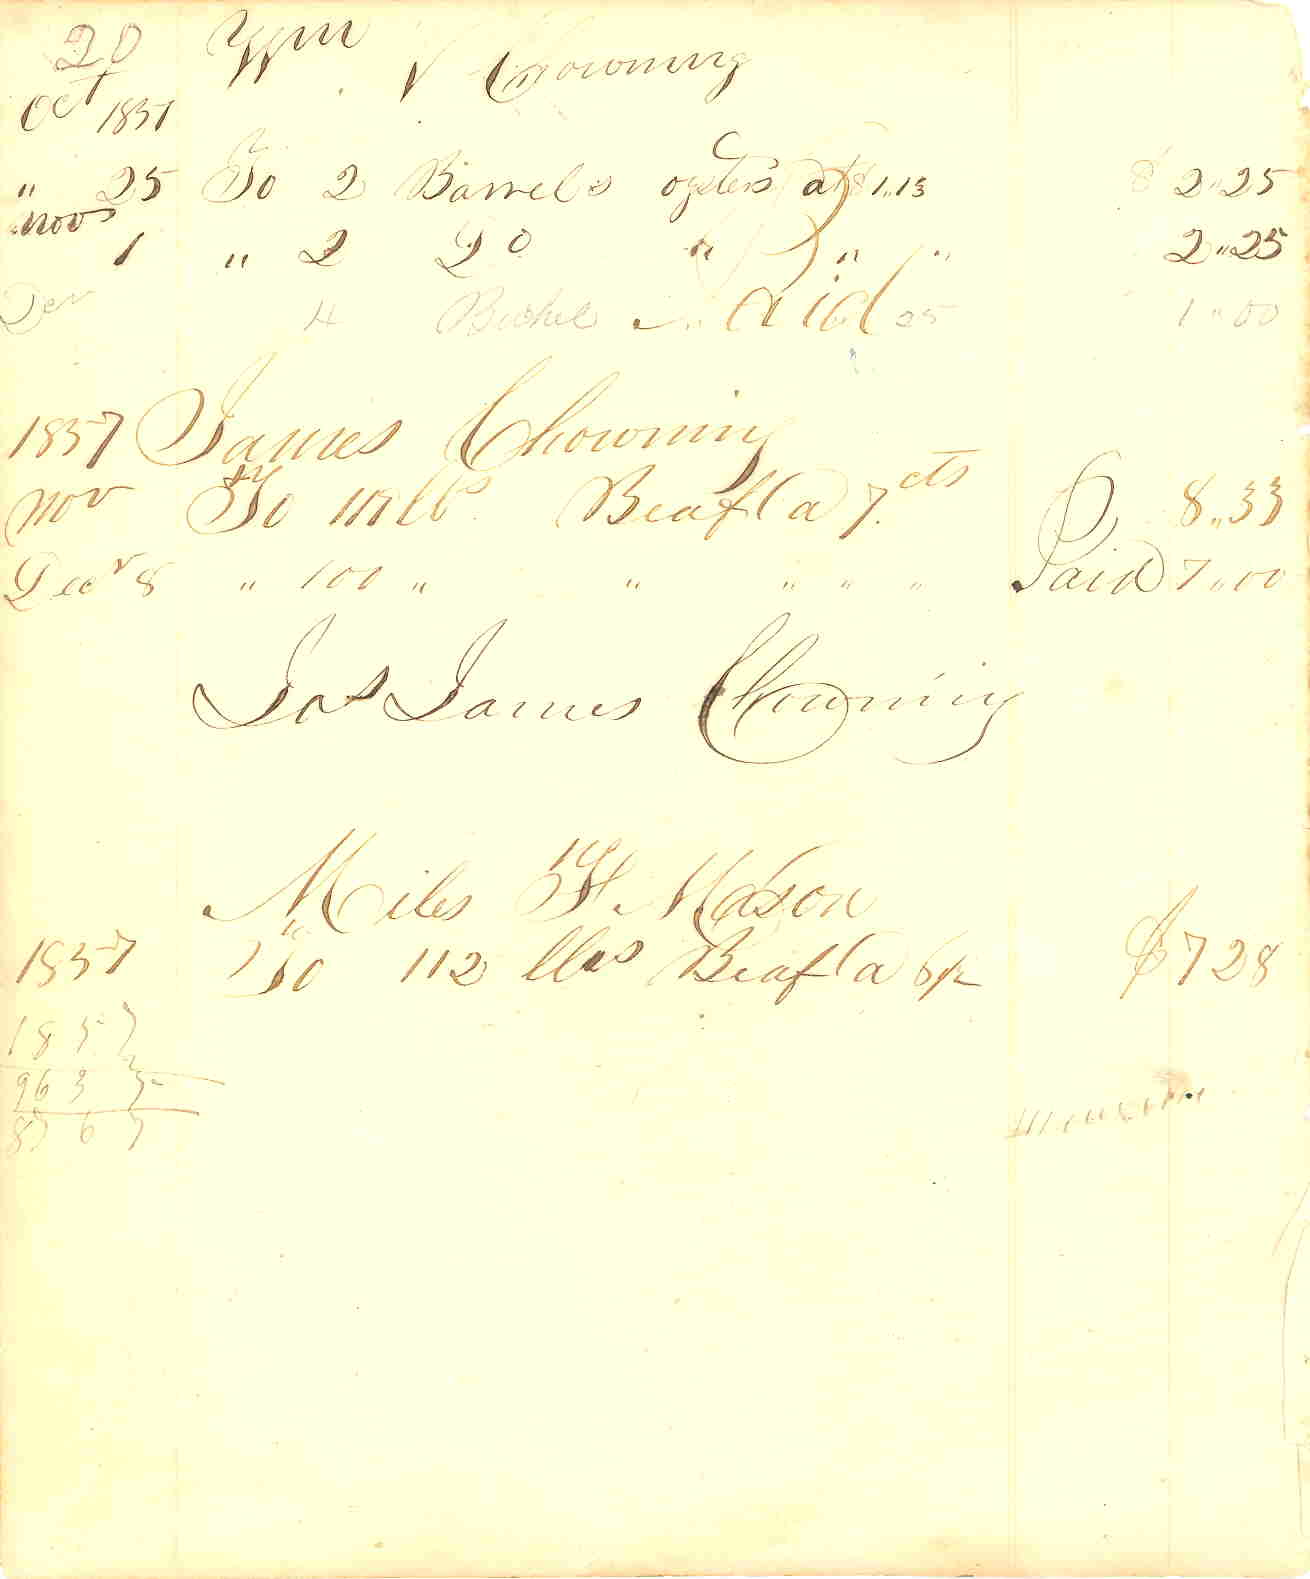 20 Wm V Chowning
Oct 1857
" 25 To 2 Barrels oysters at $1..13 $ 2..25
Nov
1 " 2 Do " " " 2..25
Decr 4 Bushel " 25 1..00
Paid
1857 James Chowning
Nov To 119 lbs Beaf (a 7. cts 8..33
Decr 8 " 100 " " " " " Paid 7..00
Jas James Chowning
Miles H Mason
1857 To 112 lbs Beaf (a 6½ $728
1857
963
8767